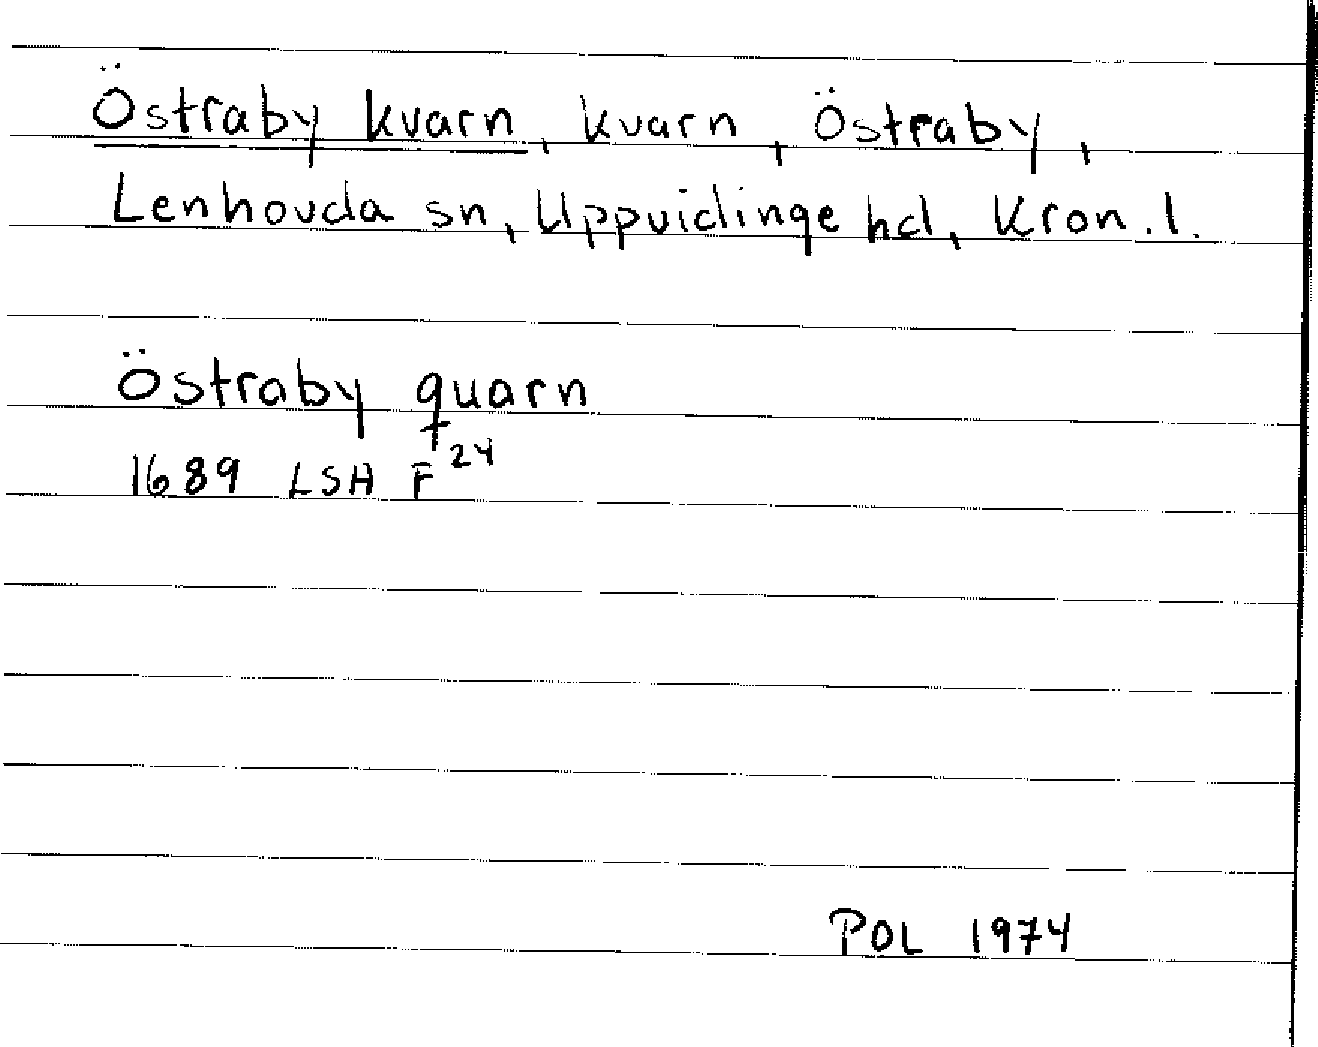 Östraby kvarn, kvarn, Östraby,
Lenhovda sn, Uppvidinge hd, Kron. l.
Östraby quarn
1689 LSH F 24
POL 1974